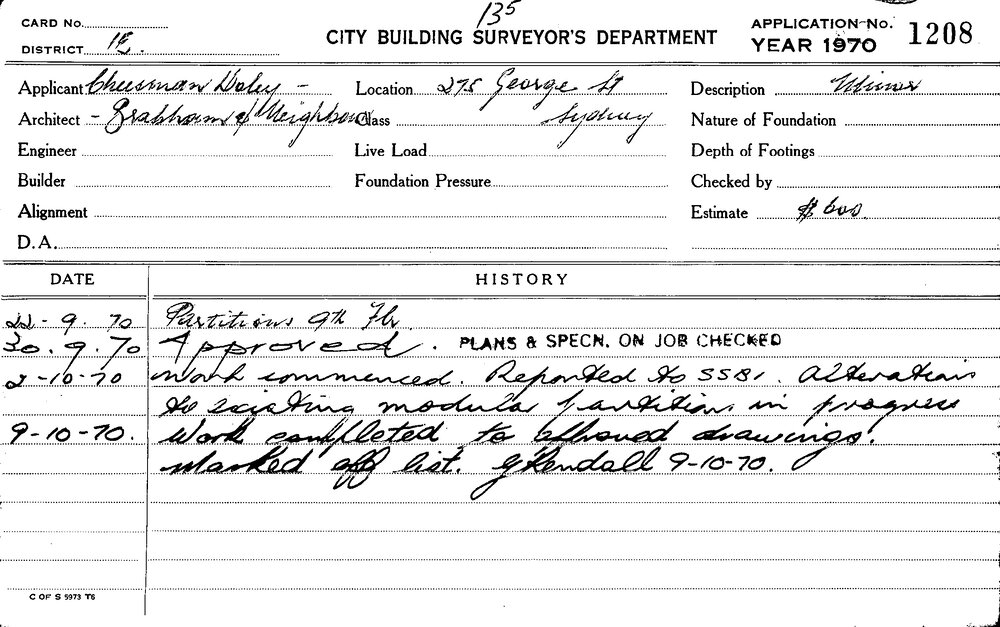 135
CARD No.
CITY BUILDING SURVEYOR'S DEPARTMENT
APPLICATION No. 1208
DISTRICT 1E.
YEAR 1970
Applicant Cheesman Doley -
Location 275 George St
Description Minor
Architect - Brabham & Neighbour
Class Sydney
Nature of Foundation
Engineer
Live Load
Depth of Footings
Builder
Foundation Pressure
Checked by
Alignment
Estimate $600
D.A.
DATE
HISTORY
22-9.70 Partitions 9th Flr.
30.9.70 Approved. PLANS & SPECN. ON JOB CHECKED
2-10-70 Work commenced. Reported to SSBI. Alterations
to existing modular partitions in progress
9-10-70. Work completed to approved drawings.
Marked off list. G Kendall 9-10-70.
C OF S 5973 T6